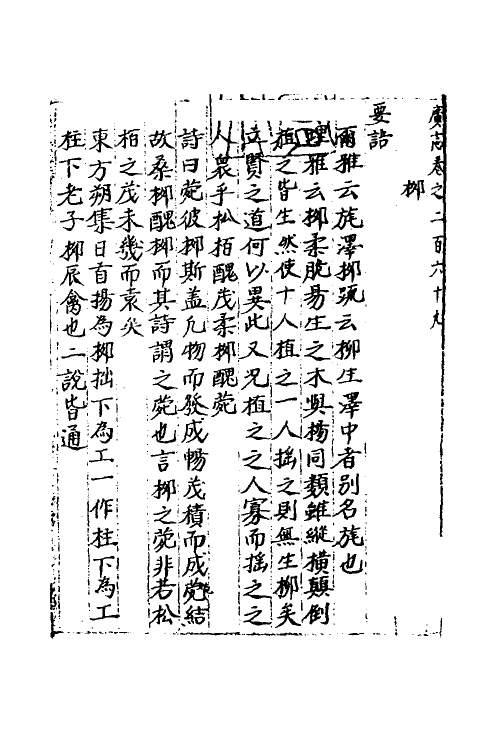 廣志卷之二百六十九
柳
要詰
爾雅云旄澤柳疏云柳生澤中者别名旄也
埤雅云柳柔脆易生之木與楊同類雖縱横顛倒
植之皆生然使十人植之一人揺之則無生柳矣
立賢之道何以異此又况植之之人寡而揺之之
人衆乎松栢醜茂柔柳醜菀
詩曰菀彼柳斯盖凢物而發成暢茂積而成菀結
故桑柳醜柳而其詩謂之菀也言柳之菀非若松
栢之茂未幾而衰矣
東方朔集曰首揚為柳拙下為工一作柱下為工
柱下老子柳辰禽也二說皆通